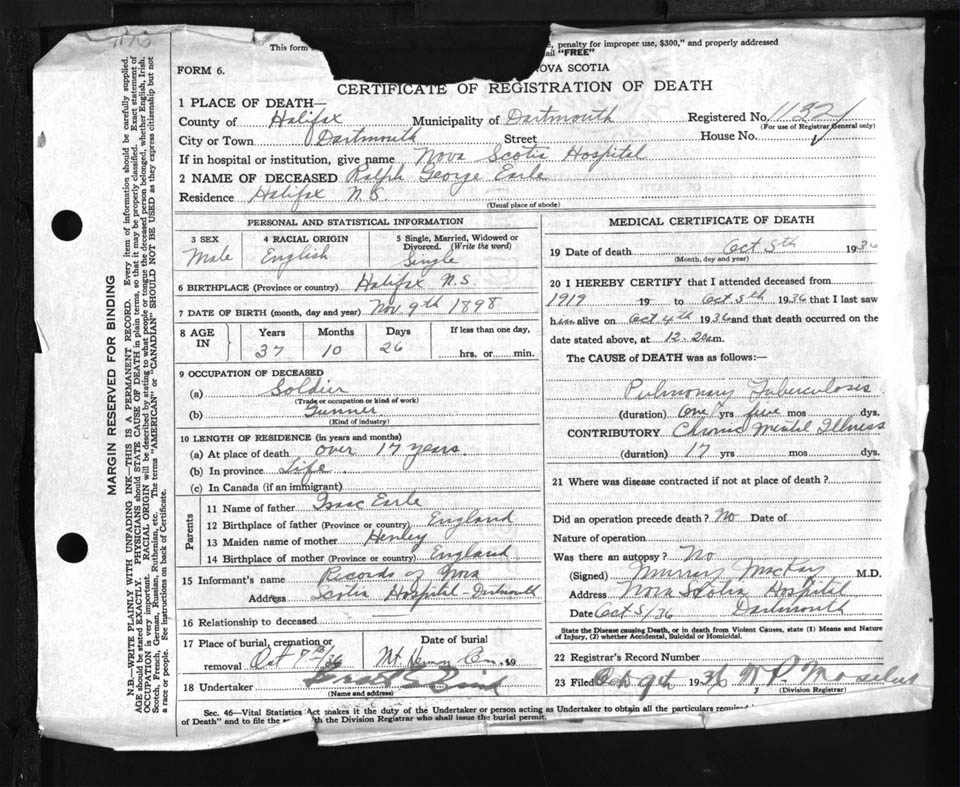 1176
This form
, penalty for improper use, $300," and properly addressed
"FREE"
FORM 6.
NOVA SCOTIA
CERTIFICATE OF REGISTRATION OF DEATH
1 PLACE OF DEATH—
County of Halifax Municipality of Dartmouth Registered No. 11321
(For use of Registrar General only)
City or Town Dartmouth Street House No.
If in hospital or institution, give name Nova Scotia Hospital
2 NAME OF DECEASED Ralph George Earle
Residence Halifax N.S.
(Usual place of abode)
PERSONAL AND STATISTICAL INFORMATION
3 SEX Male
4 RACIAL ORIGIN English
5 Single, Married, Widowed or Divorced. (Write the word) Single
6 BIRTHPLACE (Province or country) Halifax N.S.
7 DATE OF BIRTH (month, day and year) Nov. 9th 1898
8 AGE IN
Years Months Days If less than one day,
37 10 26 hrs. or min.
9 OCCUPATION OF DECEASED
(a) Soldier
(Trade or occupation or kind of work)
(b) Gunner
(Kind of industry)
10 LENGTH OF RESIDENCE (in years and months)
(a) At place of death over 17 years
(b) In province Life
(c) In Canada (if an immigrant)
Parents
11 Name of father Isaac Earle
12 Birthplace of father (Province or country) England
13 Maiden name of mother Henley
14 Birthplace of mother (Province or country) England
15 Informant's name Records of Nova
Address Scotia Hospital - Dartmouth
16 Relationship to deceased
17 Place of burial, cremation or Date of burial
removal Oct 7th/36 Mt Hermon Cem. 19
18 Undertaker
(Name and address)
MEDICAL CERTIFICATE OF DEATH
19 Date of death Oct 5th 1936
(Month, day and year)
20 I HEREBY CERTIFY that I attended deceased from
1919 19 to Oct 5th 1936 that I last saw
him alive on Oct 4th 1936 and that death occurred on
date stated above, at 12.20 a m.
The CAUSE of DEATH was as follows:—
Pulmonary Tuberculosis
(duration) One yrs five mos dys.
CONTRIBUTORY Chronic Mental Illness
(duration) 17 yrs mos dys.
21 Where was disease contracted if not at place of death?
Did an operation precede death? No Date of
Nature of operation
Was there an autopsy? No
(Signed) Murray MacKay M.D.
Address Nova Scotia Hospital
Date Oct 5/36 Dartmouth
State the Disease causing Death, or in death from Violent Causes, state (1) Means and Nature
of Injury, (2) whether Accidental, Suicidal or Homicidal.
22 Registrar's Record Number
23 Filed Oct 9th 1936
(Division Registrar)
Sec. 46—Vital Statistics Act makes it the duty of the Undertaker or person acting as Undertaker to obtain all the particulars
of Death" and to file the with the Division Registrar who shall issue the burial permit.
MARGIN RESERVED FOR BINDING
N.B.—WRITE PLAINLY WITH UNFADING INK—THIS IS A PERMANENT RECORD. Every item of information should be carefully supplied.
AGE should be stated EXACTLY. PHYSICIANS should STATE CAUSE OF DEATH in plain terms, so that it may be properly classified. Exact statement of
OCCUPATION is very important. RACIAL ORIGIN will be described by stating to what people or tongue the deceased person belonged, whether English, Irish,
Scotch, French, German, Russian, Ruthenian, etc. The terms "AMERICAN" or "CANADIAN" SHOULD NOT BE USED as they express citizenship but not
a race or people. See instructions on back of Certificate.